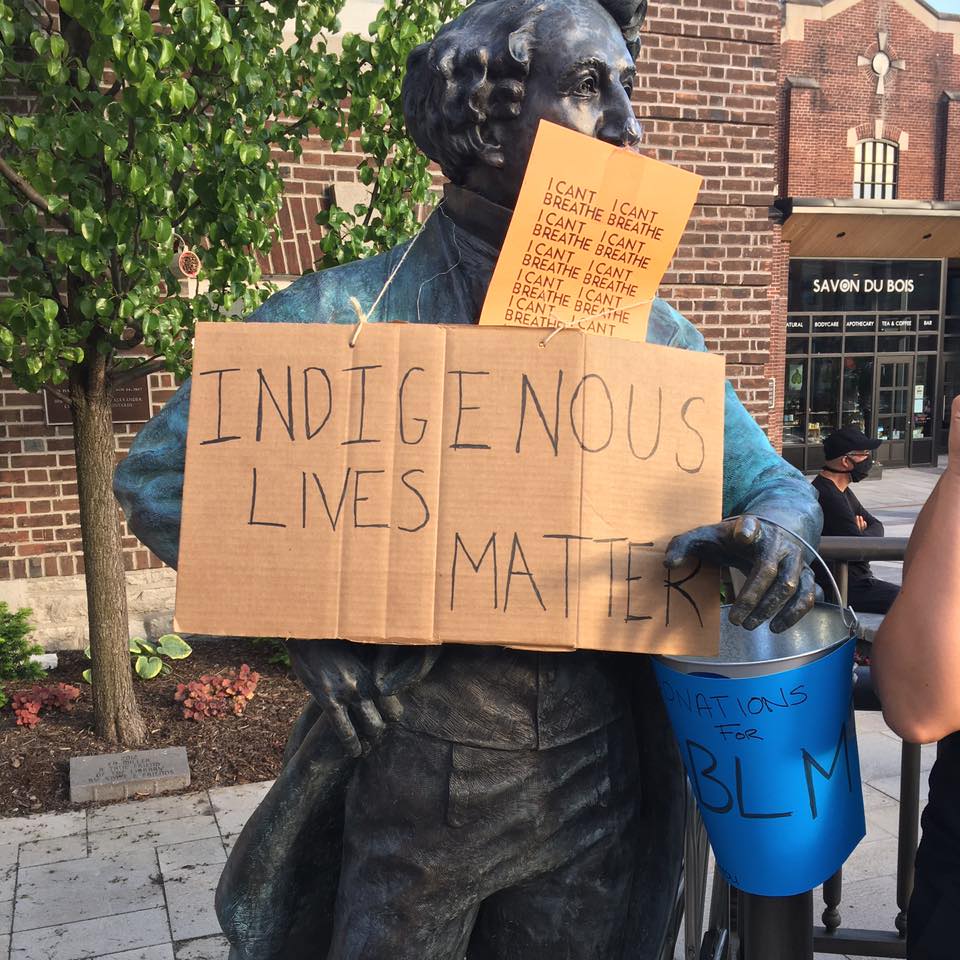 I CANT
BREATHE
I CANT
BREATHE
I CANT
BREATHE
I CANT
BREATHE
I CANT
BREATHE
I CANT
BREATHE
I CANT
BREATHE
I CANT
BREATHE
I CANT
BREATHE
I CANT
INDIGENOUS
LIVES
MATTER
ONATIONS
FOR
BLM
SAVON DU BOIS
NATURAL BODYCARE APOTHECARY TEA & COFFEE BAR
2012
MILLER
A TRUE FRIEND
OF THE LIBRARY